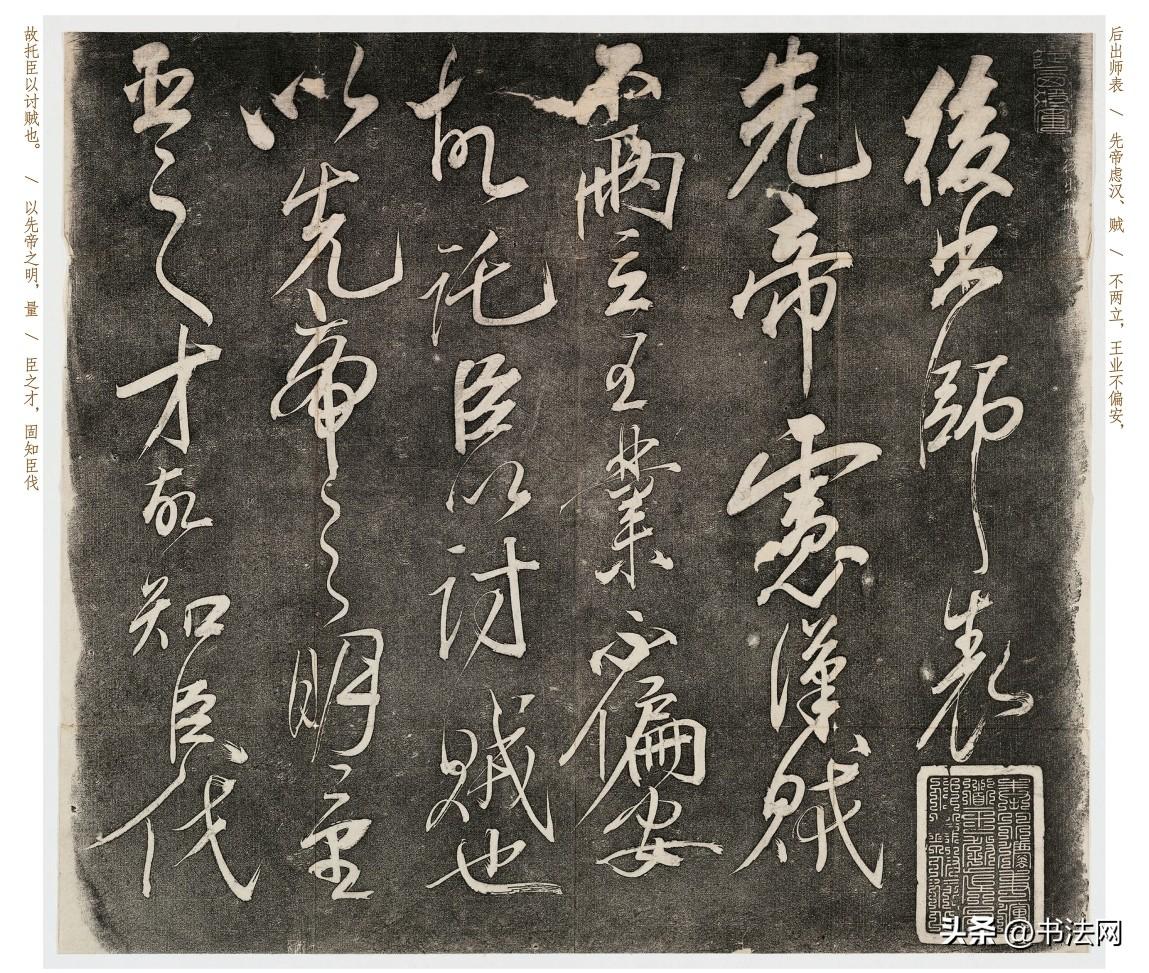 后出师表 / 先帝虑汉、贼 / 不两立，王业不偏安，
後出師表
先帝慮漢賊
不兩立王業不偏安
故託臣以討賊也
以先帝之明量
臣之才故知臣伐
故托臣以讨贼也。 / 以先帝之明，量 / 臣之才，固知臣伐
头条 @书法网